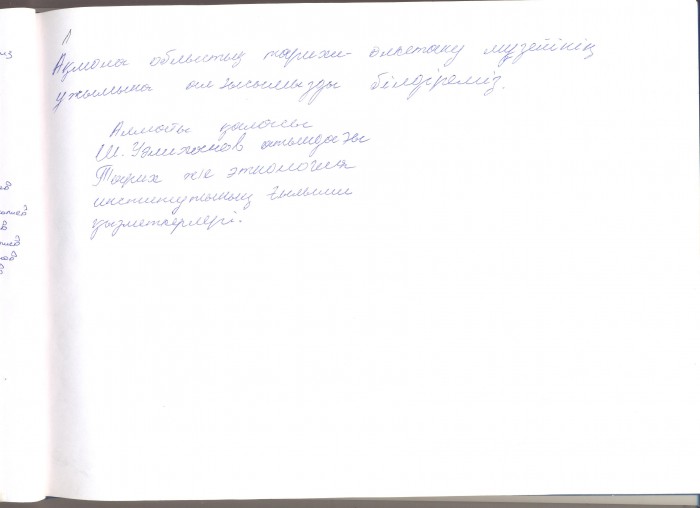 Ақмола облыстық тарихи-өлкетану музейінің
ұжымына алғысымызды білдіреміз.
Алматы қаласы
Ш. Уәлиханов атындағы
Тарих және этнология
институтының ғылыми
қызметкерлері.